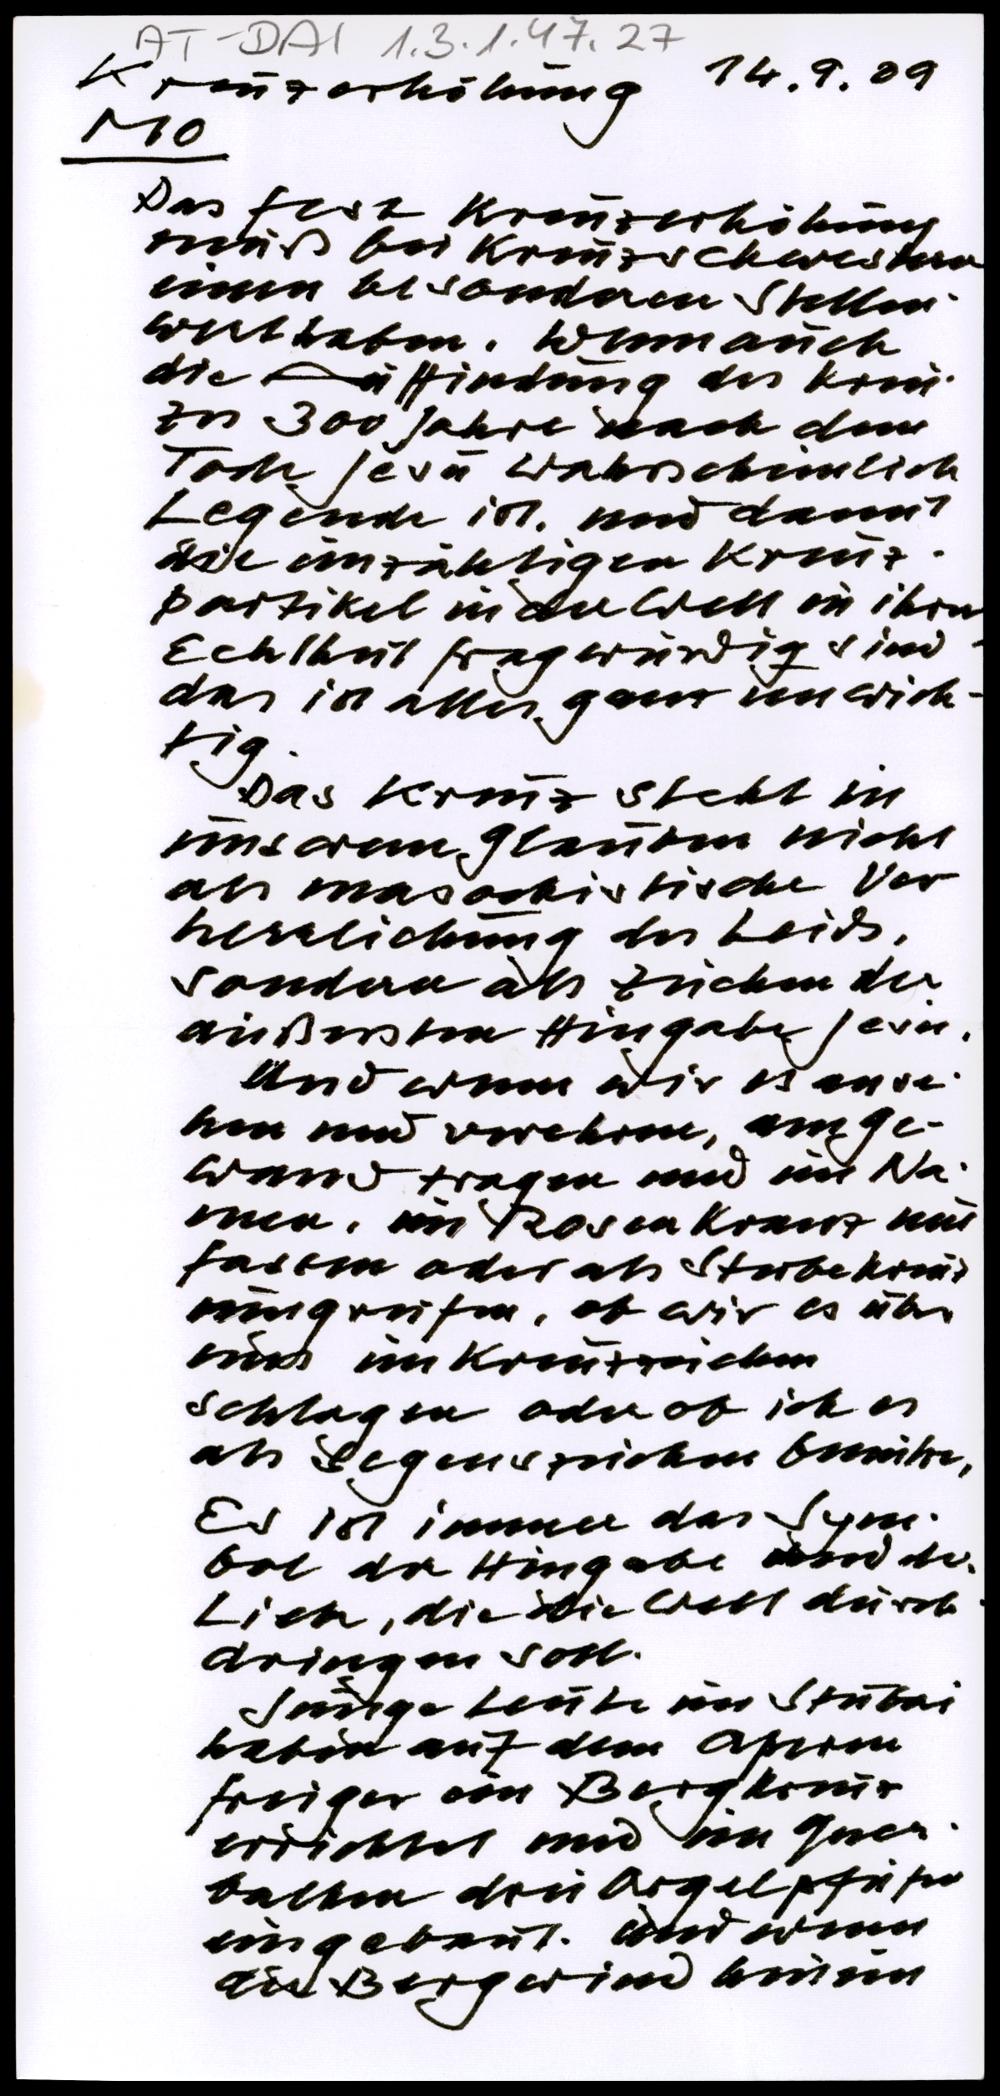 AT-DAI 1.3.1.47.27
Kreuzerhöhung 14.9.09
MO
Das Fest Kreuzerhöhung
muß bei Kreuzschwestern
einen besonderen Stellen-
wert haben. Wenn auch
die Auffindung des Kreu-
zes 300 Jahre nach dem
Tode Jesu wahrscheinlich
Legende ist. und damit
die unzähligen Kreuz-
partikel in der Welt in ihrer
Echtheit fragwürdig sind -
das ist alles ganz unwich-
tig.
Das Kreuz steht in
unserem Glauben nicht
als masochistische Ver
herrlichung des Leids,
sondern als Zeichen der
äußersten Hingabe Jesu.
Und wenn wir es anse-
hen und verehren, am Ge-
wand tragen und im Na-
men. im Rosenkranz um
fassen oder als Sterbekreuz
umgreifen, ob wir es über
uns im Kreuzzeichen
schlagen oder ob ich es
als Segenszeichen benütze,
Es ist immer das Sym-
bol der Hingabe und der
Liebe, die die Welt durch-
dringen soll.
Junge Leute im Stubai
haben auf dem Aperen
Freiger ein Bergkreuz
errichtet und im Quer-
balken drei Orgelpfeifen
eingebaut. Und wenn
die Bergwind hinein